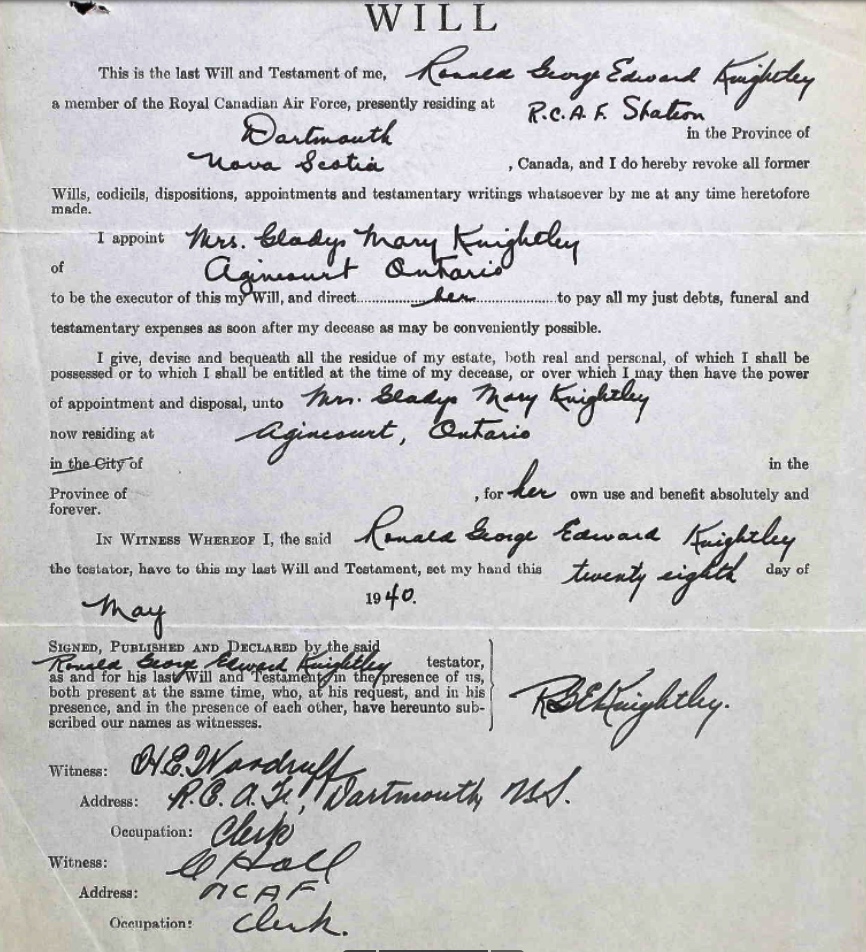 WILL
This is the last Will and Testament of me, Ronald George Edward Knightley
a member of the Royal Canadian Air Force, presently residing at R.C.A.F. Station
Dartmouth in the Province of
Nova Scotia , Canada, and I do hereby revoke all former
Wills, codicils, dispositions, appointments and testamentary writings whatsoever by me at any time heretofore
made.
I appoint Mrs. Gladys Mary Knightley
of Agincourt Ontario
to be the executor of this my Will, and direct................her..................to pay all my just debts, funeral and
testamentary expenses as soon after my decease as may be conveniently possible.
I give, devise and bequeath all the residue of my estate, both real and personal, of which I shall be
possessed or to which I shall be entitled at the time of my decease, or over which I may then have the power
of appointment and disposal, unto Mrs. Gladys Mary Knightley
now residing at Agincourt, Ontario
in the City of in the
Province of , for her own use and benefit absolutely and
forever.
IN WITNESS WHEREOF I, the said Ronald George Edward Knightley
the testator, have to this my last Will and Testament, set my hand this twenty eighth day of
May 1940.
SIGNED, PUBLISHED AND DECLARED by the said
Ronald George Edward Knightley testator,
as and for his last Will and Testament in the presence of us,
both present at the same time, who, at his request, and in his
presence, and in the presence of each other, have hereunto sub-
scribed our names as witnesses.
RGEKnightley.
Witness: H.E. Woodruff
Address: R.C.A.F., Dartmouth, N.S.
Occupation: Clerk
Witness: Hall
Address: RCAF
Occupation: Clerk.